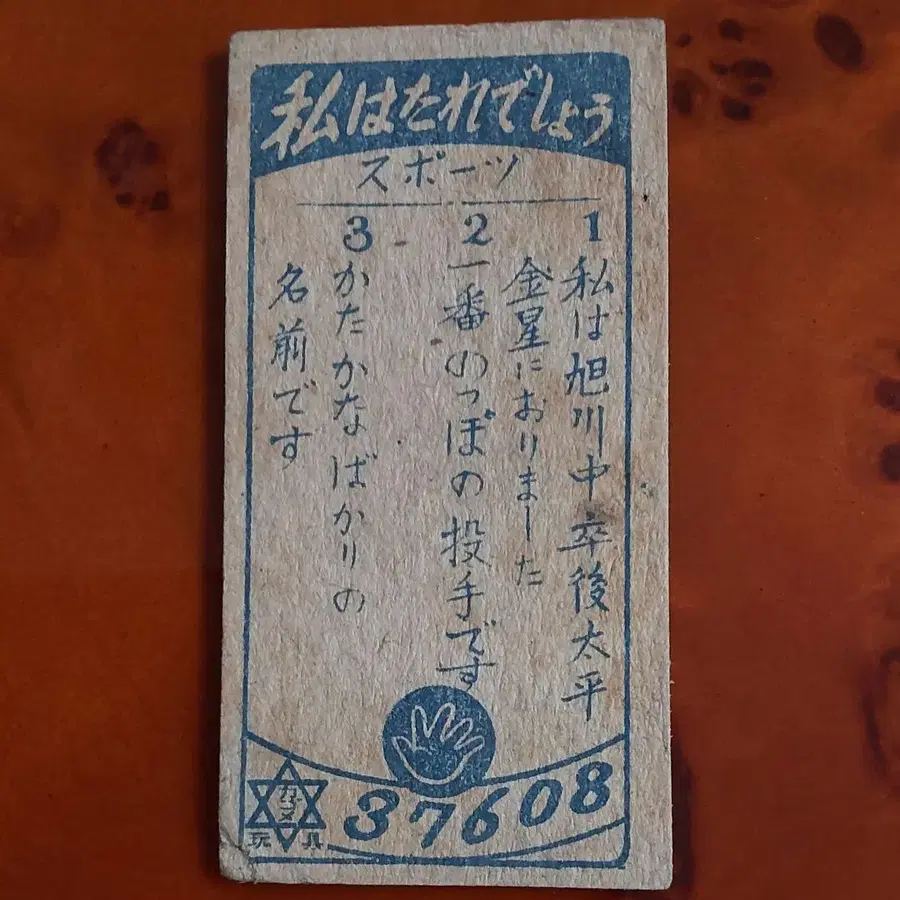 私はたれでしょう
スポーツ
1
私は旭川中卒後太平
金星におりました
2
一番のっぽの投手です
3
かたかなばかりの
名前です
カバヤ
玩具
37608